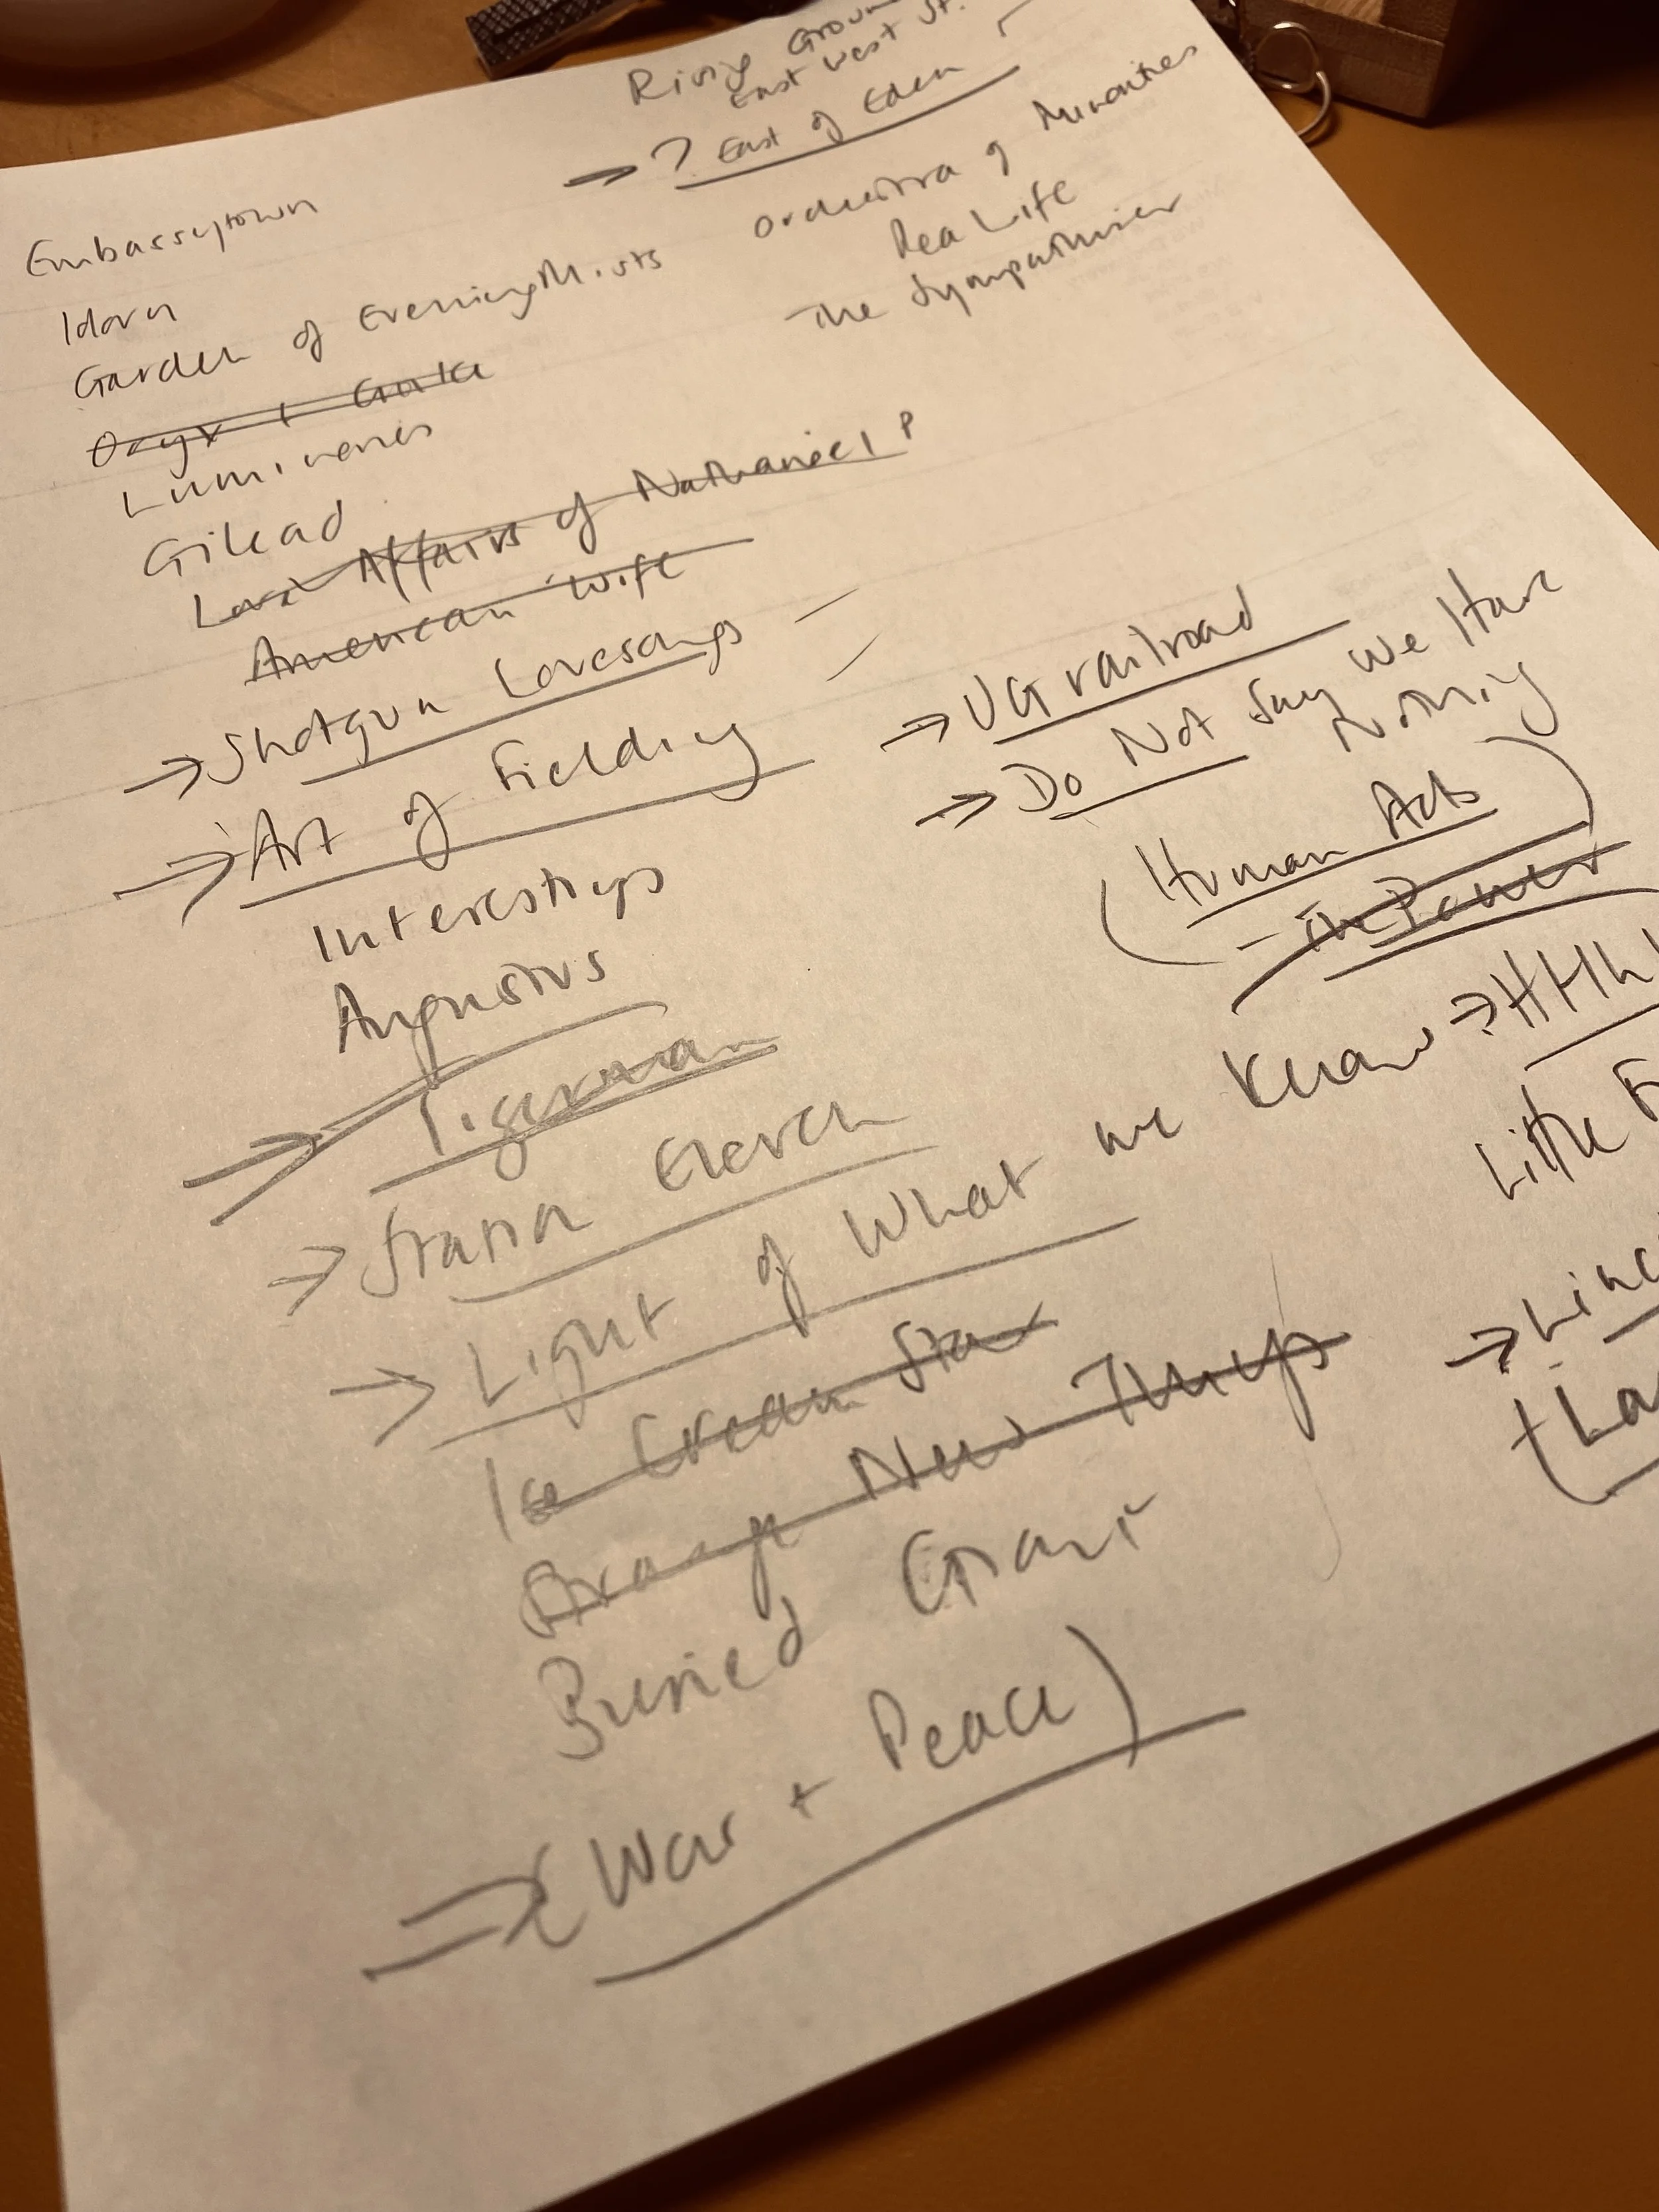 Rising Groun
East West St.
→ ? East of Eden
Orchestra of Minorities
Rea Life
The Sympathiser
Embassytown
Idoru
Garden of Evening Mists
Oryx + Crake
Luminaries
Gilead
Love Affairs of Nathaniel P
American Wife
→ Shotgun Lovesongs
→ Art of Fielding
Interestings
Augustus
→ Tigerman
→ Station Eleven
→ Light of What we Know
Ice Cream Star
Strange New Things
Buried Giant
→ (War + Peace)
→ UG railroad
→ Do Not Say We Have
Nothing
(Human Acts)
- The Power
→ HHhH
Little F
→ Linc